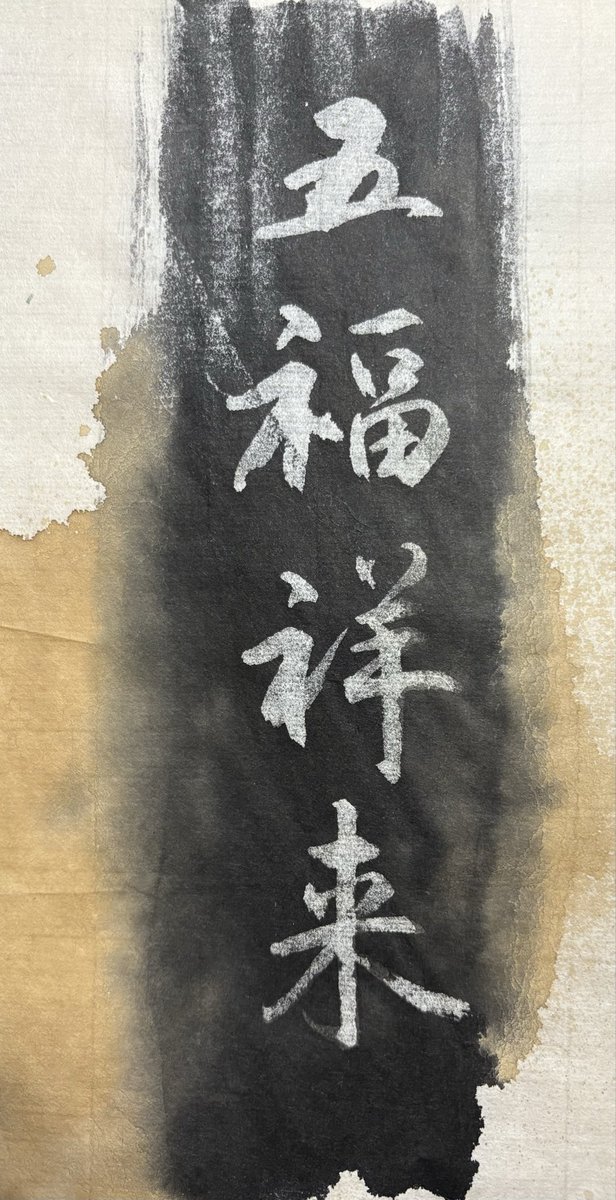 五福祥来